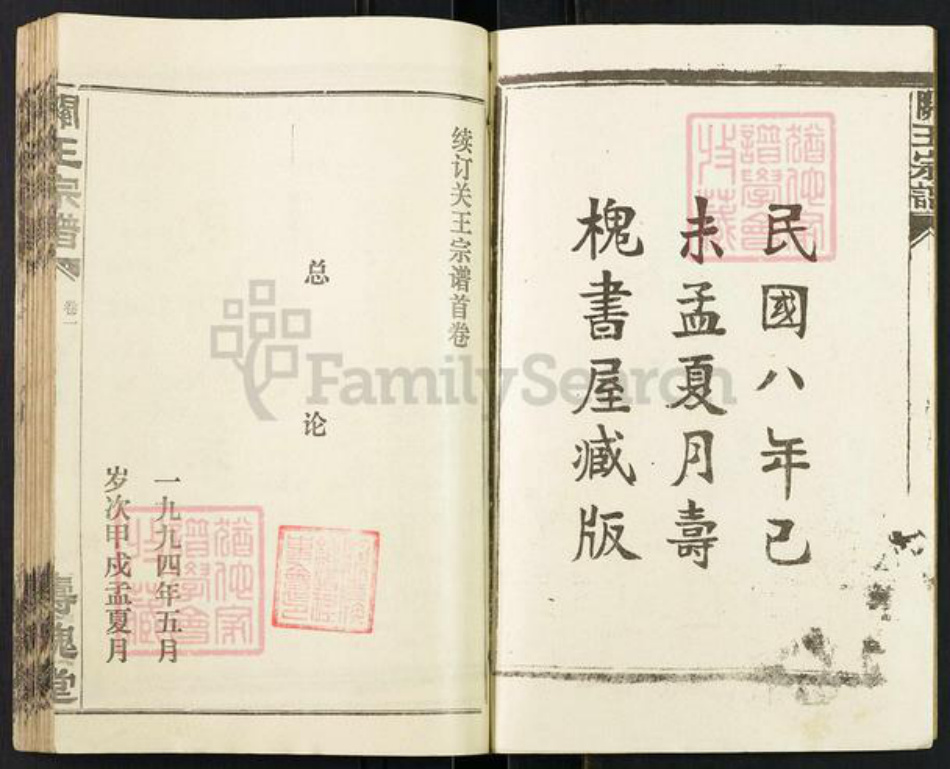 民國八年己
未孟夏月壽
槐書屋藏版
续订关王宗谱首卷
总论
一九九四年五月
岁次甲戌孟夏月
關王宗譜
卷一
壽槐堂
FamilySearch